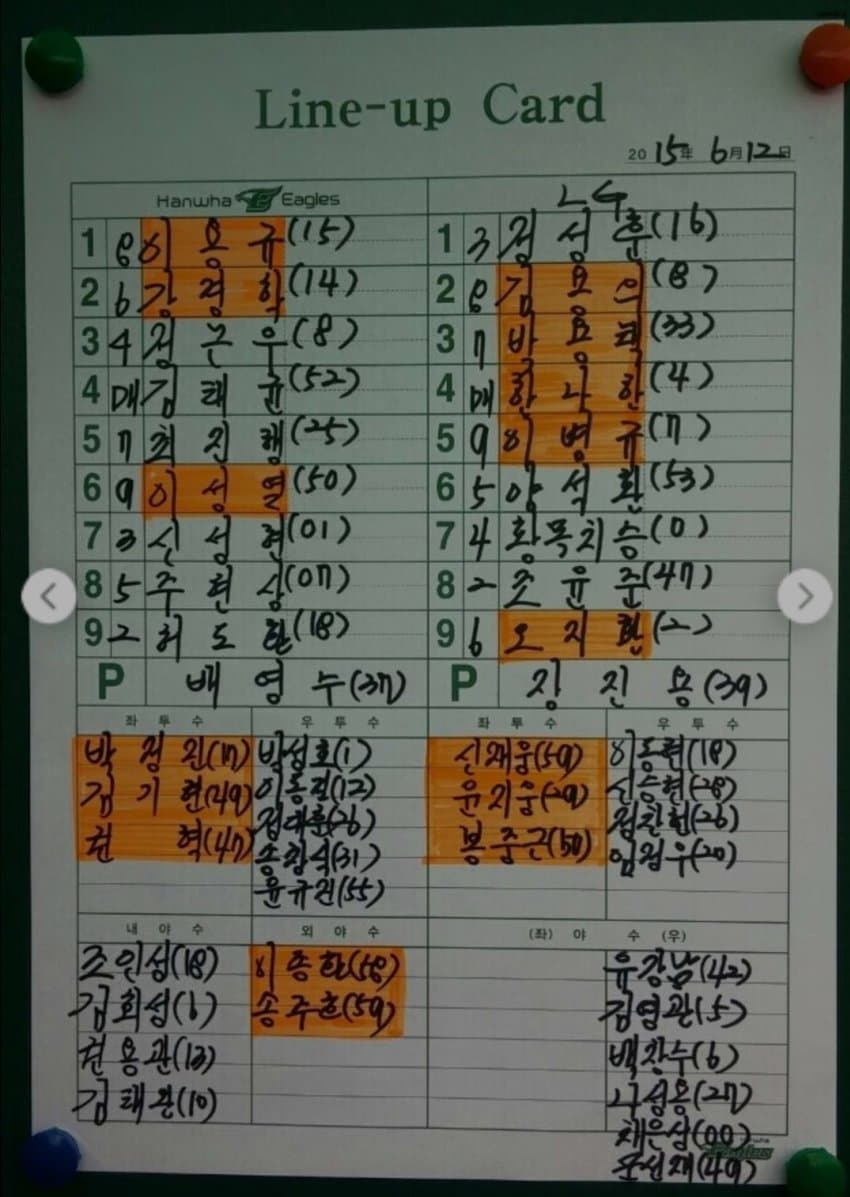 Line-up Card
2015年 6月12日
Hanwha Eagles
LG
1 8 이용규(15)
2 6 강경학(14)
3 4 정근우(8)
4 DH 김태균(52)
5 7 최진행(25)
6 9 이성열(50)
7 3 신성현(01)
8 5 주현상(07)
9 2 허도환(18)
P 배영수(37)
1 3 정성훈(16)
2 8 김용의(8)
3 7 박용택(33)
4 DH 한나한(4)
5 9 이병규(7)
6 5 양석환(53)
7 4 황목치승(0)
8 2 조윤준(47)
9 6 오지환(2)
P 장진용(39)
좌투수
박정진(17)
김기현(49)
권혁(47)
우투수
박성호(1)
이동걸(12)
정대훈(26)
송창식(31)
윤규진(55)
좌투수
신재웅(59)
윤지웅(29)
봉중근(50)
우투수
이동현(18)
신승현(28)
정찬헌(26)
임정우(20)
내야수
조인성(18)
김회성(6)
권용관(13)
김태완(10)
외야수
이종환(58)
송주호(59)
(좌) 야수 (우)
유강남(42)
김영관(5)
백창수(6)
나성용(27)
채은성(00)
문선재(49)
Eagles